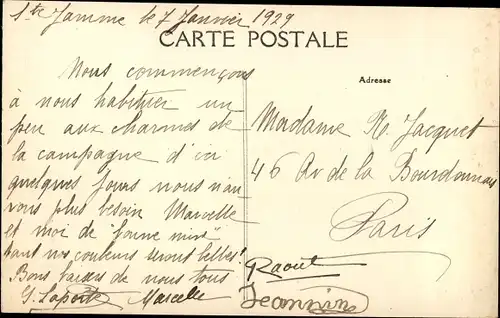 Ste Jamme le 7 Janvier 1929
CARTE POSTALE
Nous commençons
à nous habituer un
peu aux charmes de
la campagne d'ici
quelques jours nous n'au
rons plus besoin Marcelle
et moi de "bonne mine"
tant nos couleurs seront belles!
Bons baisers de nous tous
G. Laporte Marcelle
Adresse
Madame R. Jacquet
46 Av de la Bourdonnais
Paris
Raoul
Jeannine